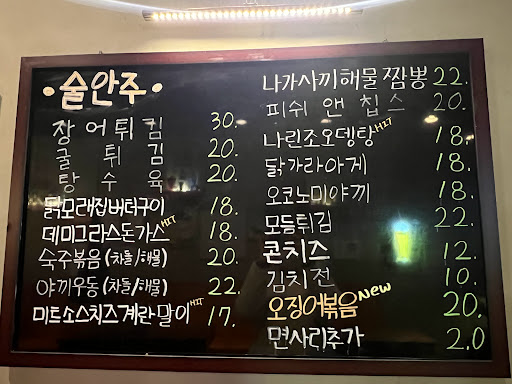 • 술안주 •
장어튀김 30.
굴 튀 김 20.
탕 수 육 20.
닭모래집버터구이 18.
데미그라스돈가스 HIT 18.
숙주볶음 (차돌/해물) 20.
야끼우동 (차돌/해물) 22.
미트소스치즈계란말이 HIT 17.
나가사끼해물짬뽕 22.
피쉬 앤 칩스 20.
나린조오뎅탕 HIT 18.
닭가라아게 18.
오코노미야끼 18.
모듬튀김 22.
콘치즈 12.
김치전 10.
오징어볶음 New 20.
면사리추가 2.0